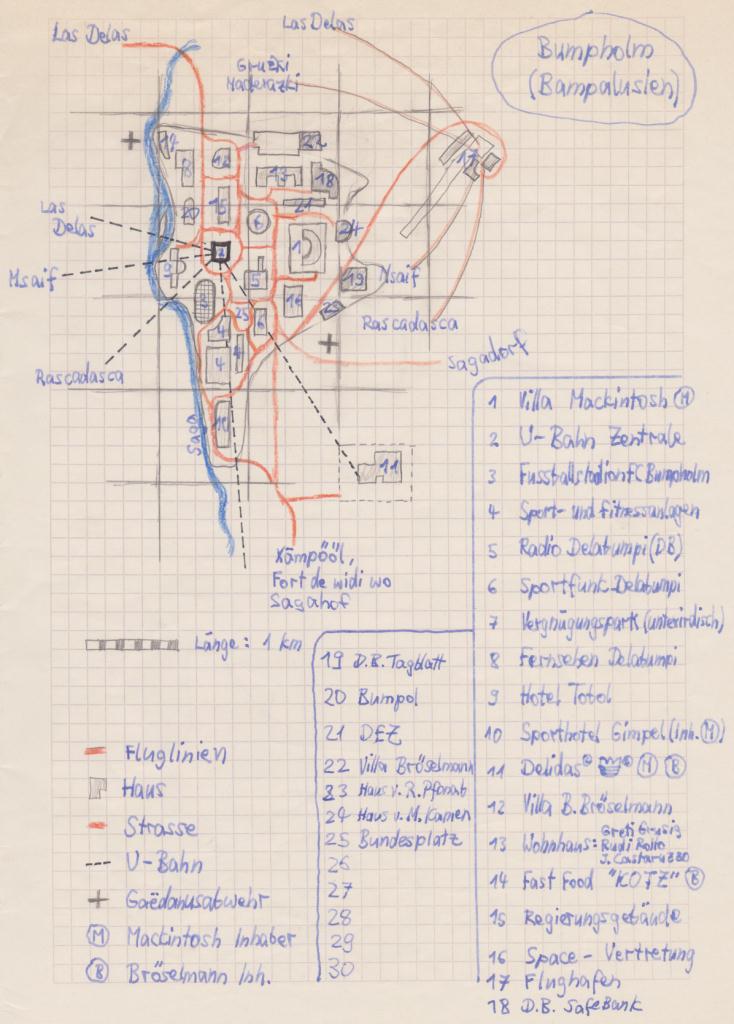 Las Delas
Las Delas
Bumpholm
(Bampalusien)
Gruzki
17
22
8
12
13
18
20
15
6
21
24
Las
Delas
1
2
9
5
19
Msaif
Msaif
3
16
25
Rascadasca
6
4
4
4
Rascadasca
Sagadorf
10
Saga
11
Xämpööl,
Fort de widi wo
Sagahof
1 Villa Mackintosh (M)
2 U-Bahn Zentrale
3 Fussballstadion FC Bumpholm
4 Sport- und Fitnessanlagen
5 Radio Delabumpi (DB)
6 Sportfunk Delabumpi
7 Vergnügungspark (unterirdisch)
8 Fernsehen Delabumpi
9 Hotel Totol
10 Sporthotel Gimpel (Inh. (M))
11 Delidas (M) (B)
12 Villa B. Bröselmann
13 Wohnhaus: Greti Grusig
Rudi Rollo
J. Castaruzzo
14 Fast Food "KOTZ" (B)
15 Regierungsgebäude
16 Space - Vertretung
17 Flughafen
18 D.B. SafeBank
19 D.B. Tagblatt
20 Bumpol
21 DEZ
22 Villa Bröselmann
23 Haus v. R.
24 Haus v. M. Kamen
25 Bundesplatz
26
27
28
29
30
Länge: 1 km
Fluglinien
Haus
Strasse
U-Bahn
Gaëdanusabwehr
(M) Mackintosh Inhaber
(B) Bröselmann Inh.